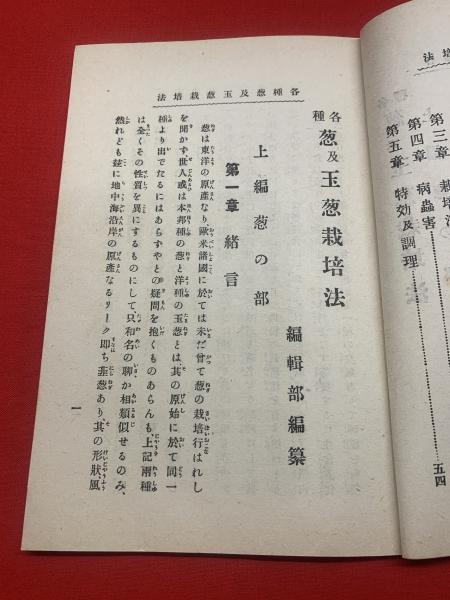 培法
第三章　栽培法
第四章　病蟲害
第五章　特効及調理
五四
各種葱及玉葱栽培法
各種葱及玉葱栽培法
編輯部編纂
上編葱の部
第一章緒言
葱は東洋の原產なり歐米諸國に於ては未だ曾て葱の栽培行はれし
を聞かず、世人或は本邦種の葱と洋種の玉葱とは、其の原始に於て同一
種より出でたるにはあらずやとの疑問を抱くものあらんも、上記兩種
は全くその性質を異にするものにして只和名の聊か相類似せるのみ、
然れども玆に地中海沿岸の原產なるリーク即ち韮葱あり、其の形狀、風
一